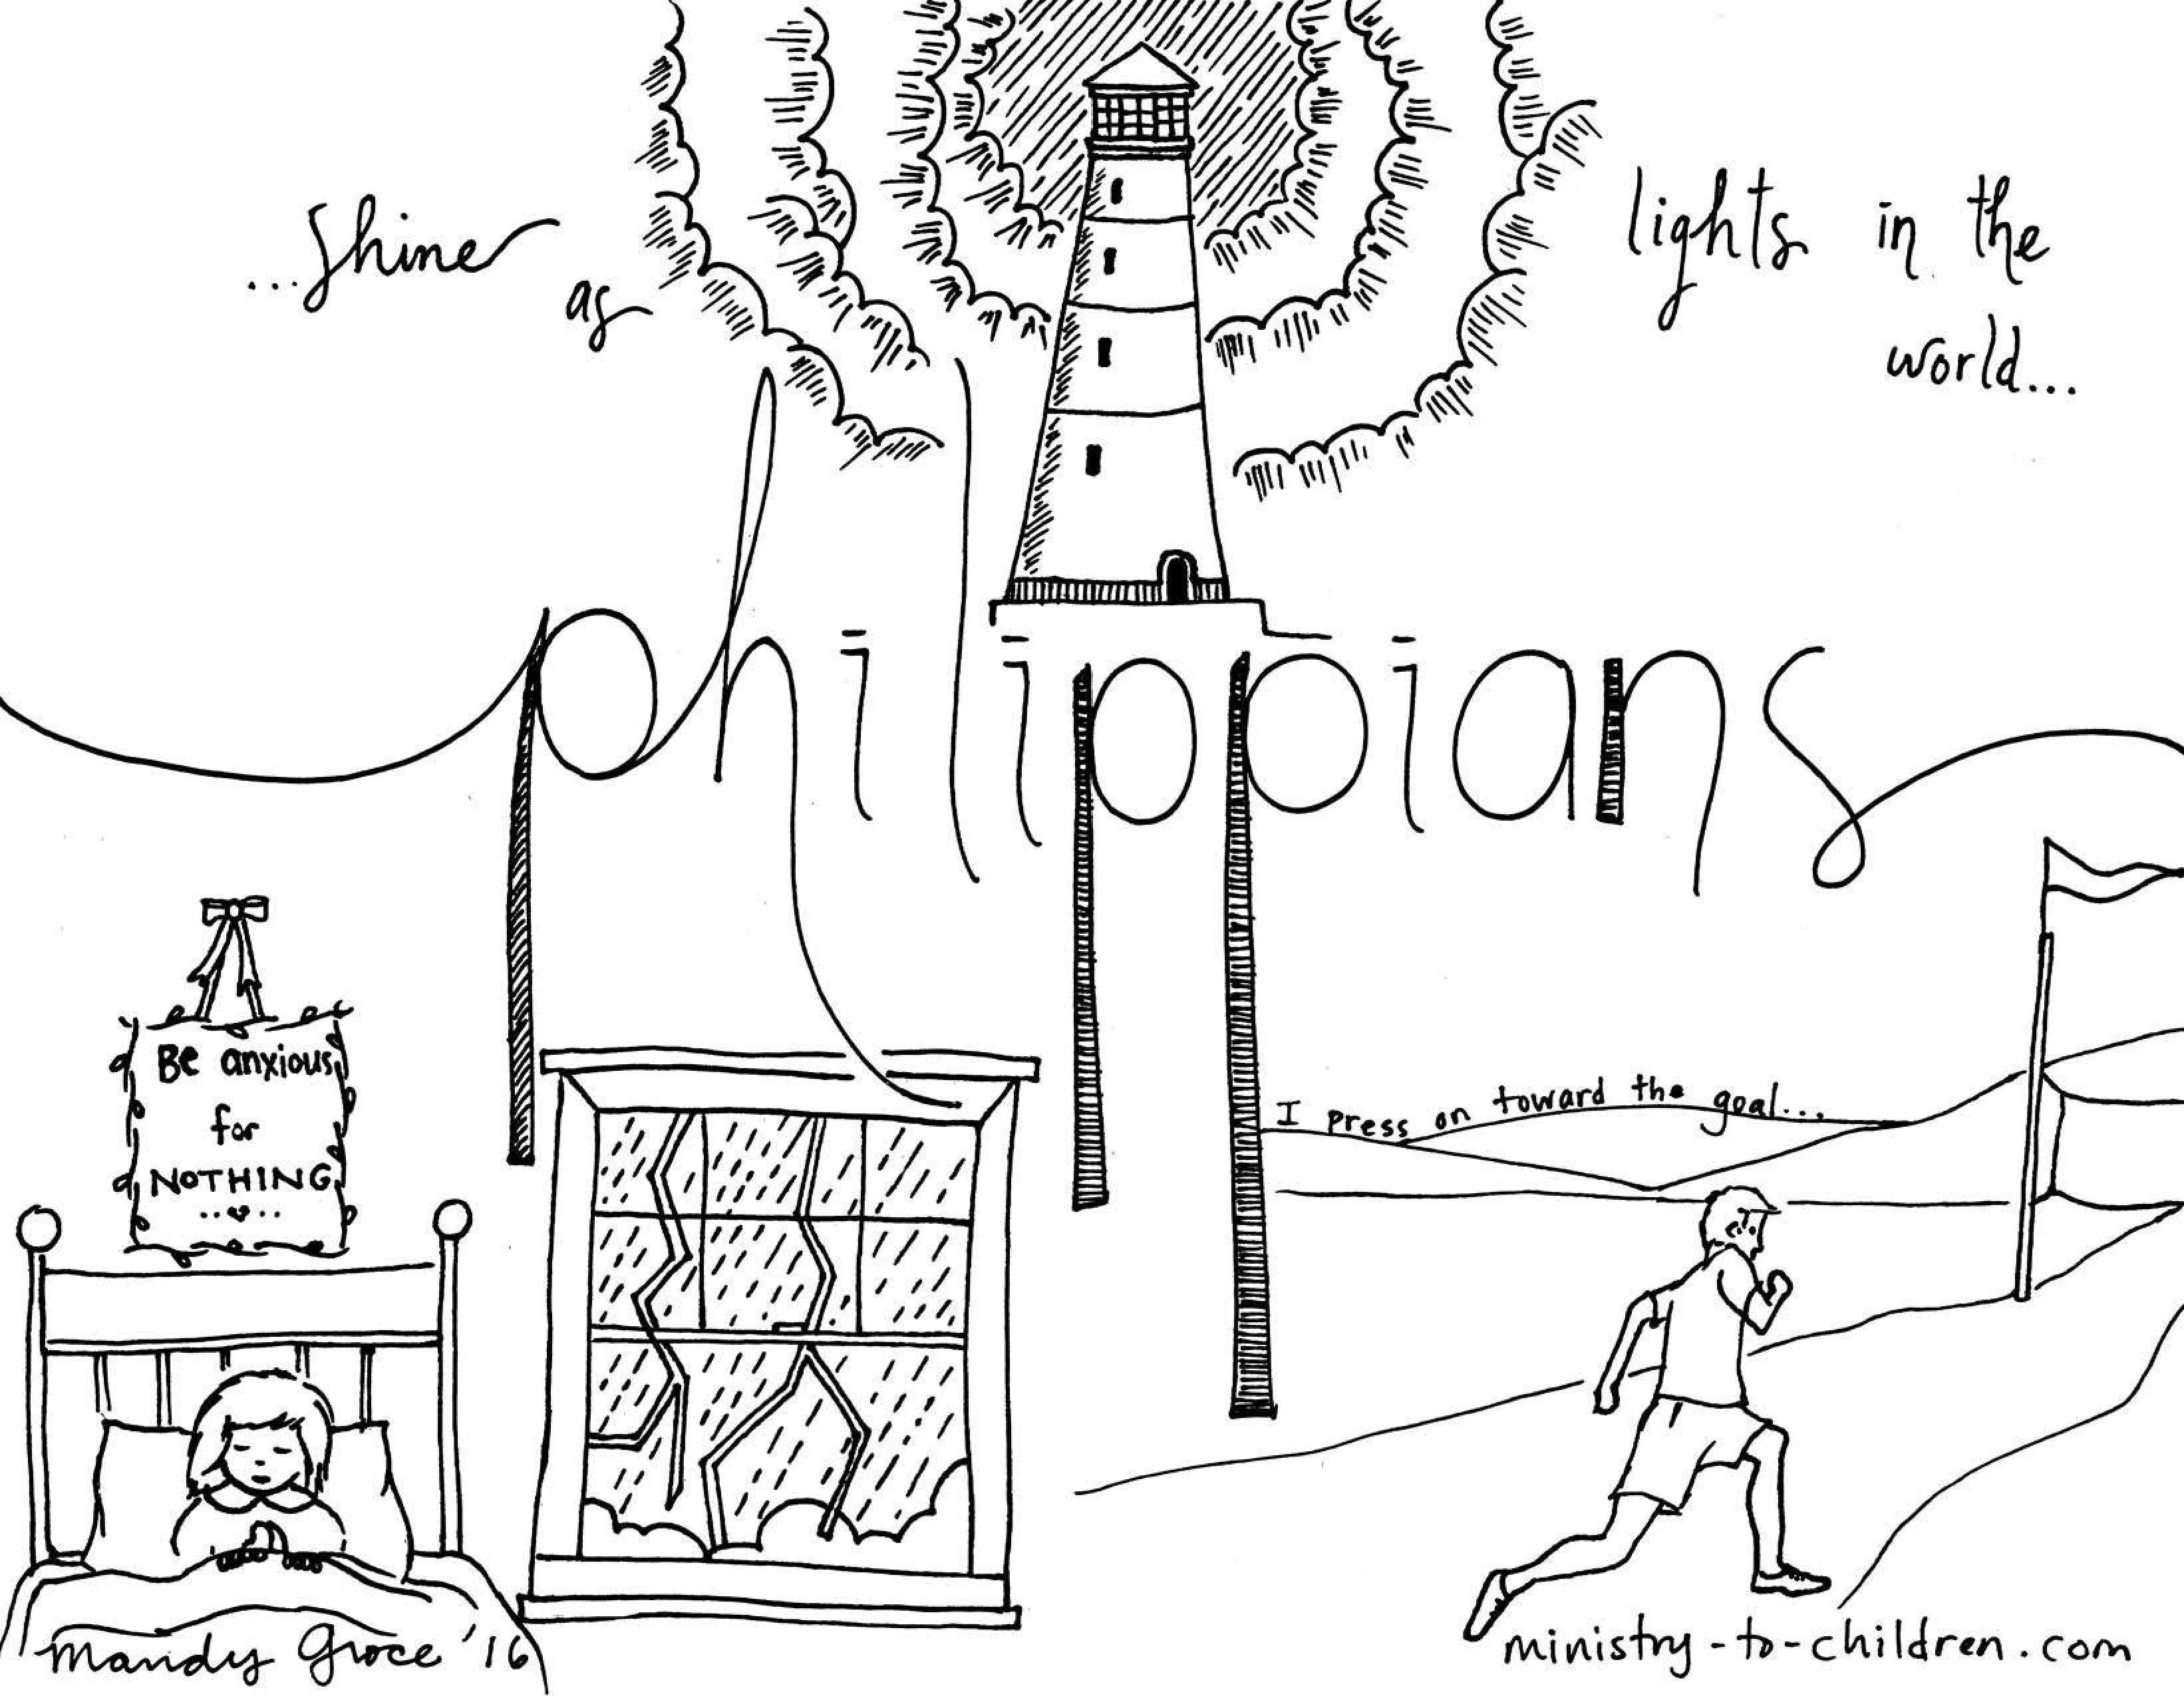 ...shine
as
lights in the
world...
philippians
Be anxious
for
NOTHING
I press on toward the goal...
Mandy Groce '16
ministry-to-children.com